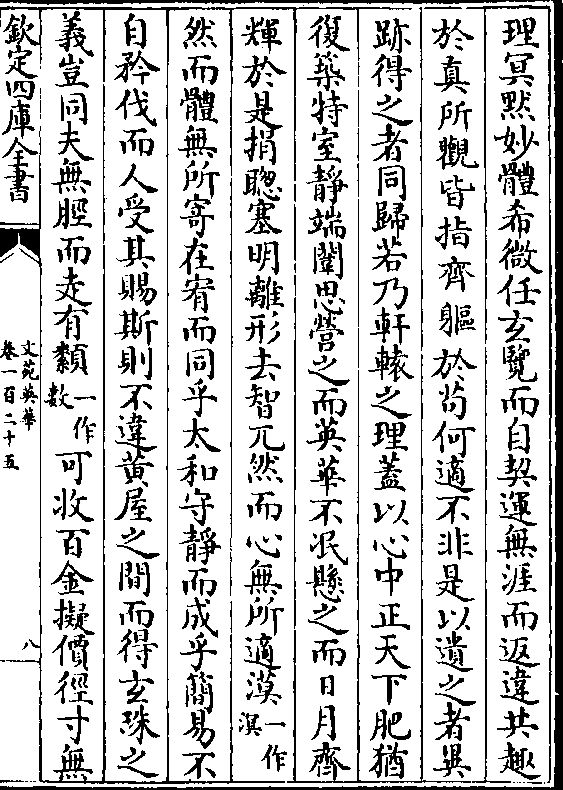 理冥黙妙體希微任玄覽而自契運無涯而返違其趣
於真所觀皆指齊軀於茍何適不非是以遺之者異
跡得之者同歸若乃軒轅之理蓋以心中正天下肥猶
復築特室靜端闈思營之而英華不泯懸之而日月齊
輝於是捐聰塞明離形去智兀然而心無所適漠一作溟
然而體無所寄在宥而同乎太和守靜而成乎簡易不
自矜伐而人受其賜斯則不違黄屋之間而得玄珠之
義豈同夫無脛而走有纇一作數可收百金擬價徑寸無
欽定四庫全書
文苑英華
卷一百二十五
八